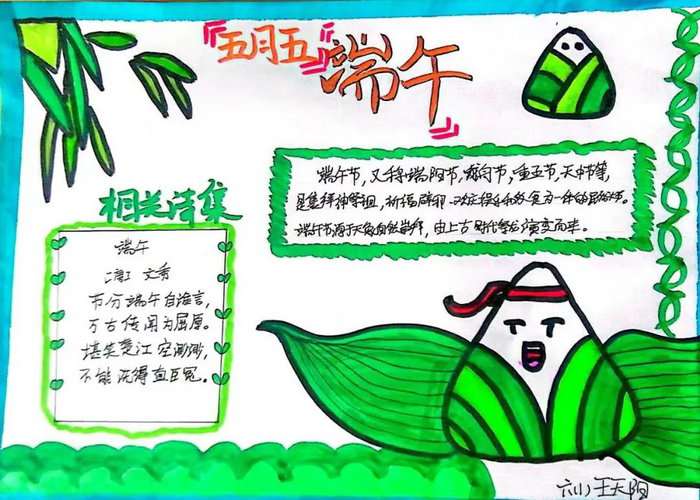 『五月五』
端午』
端午节，又称端阳节，龙舟节，重五节，天中节等，
是集拜神祭祖，祈福辟邪、欢庆娱乐和饮食为一体的民俗大节。
端午节源于天象自然崇拜，由上古时代祭龙演变而来。
相关诗集
端午
文秀
节分端午自谁言，
万古传闻为屈原。
堪笑楚江空渺渺，
不能洗得直臣冤。
六(1)王天阳